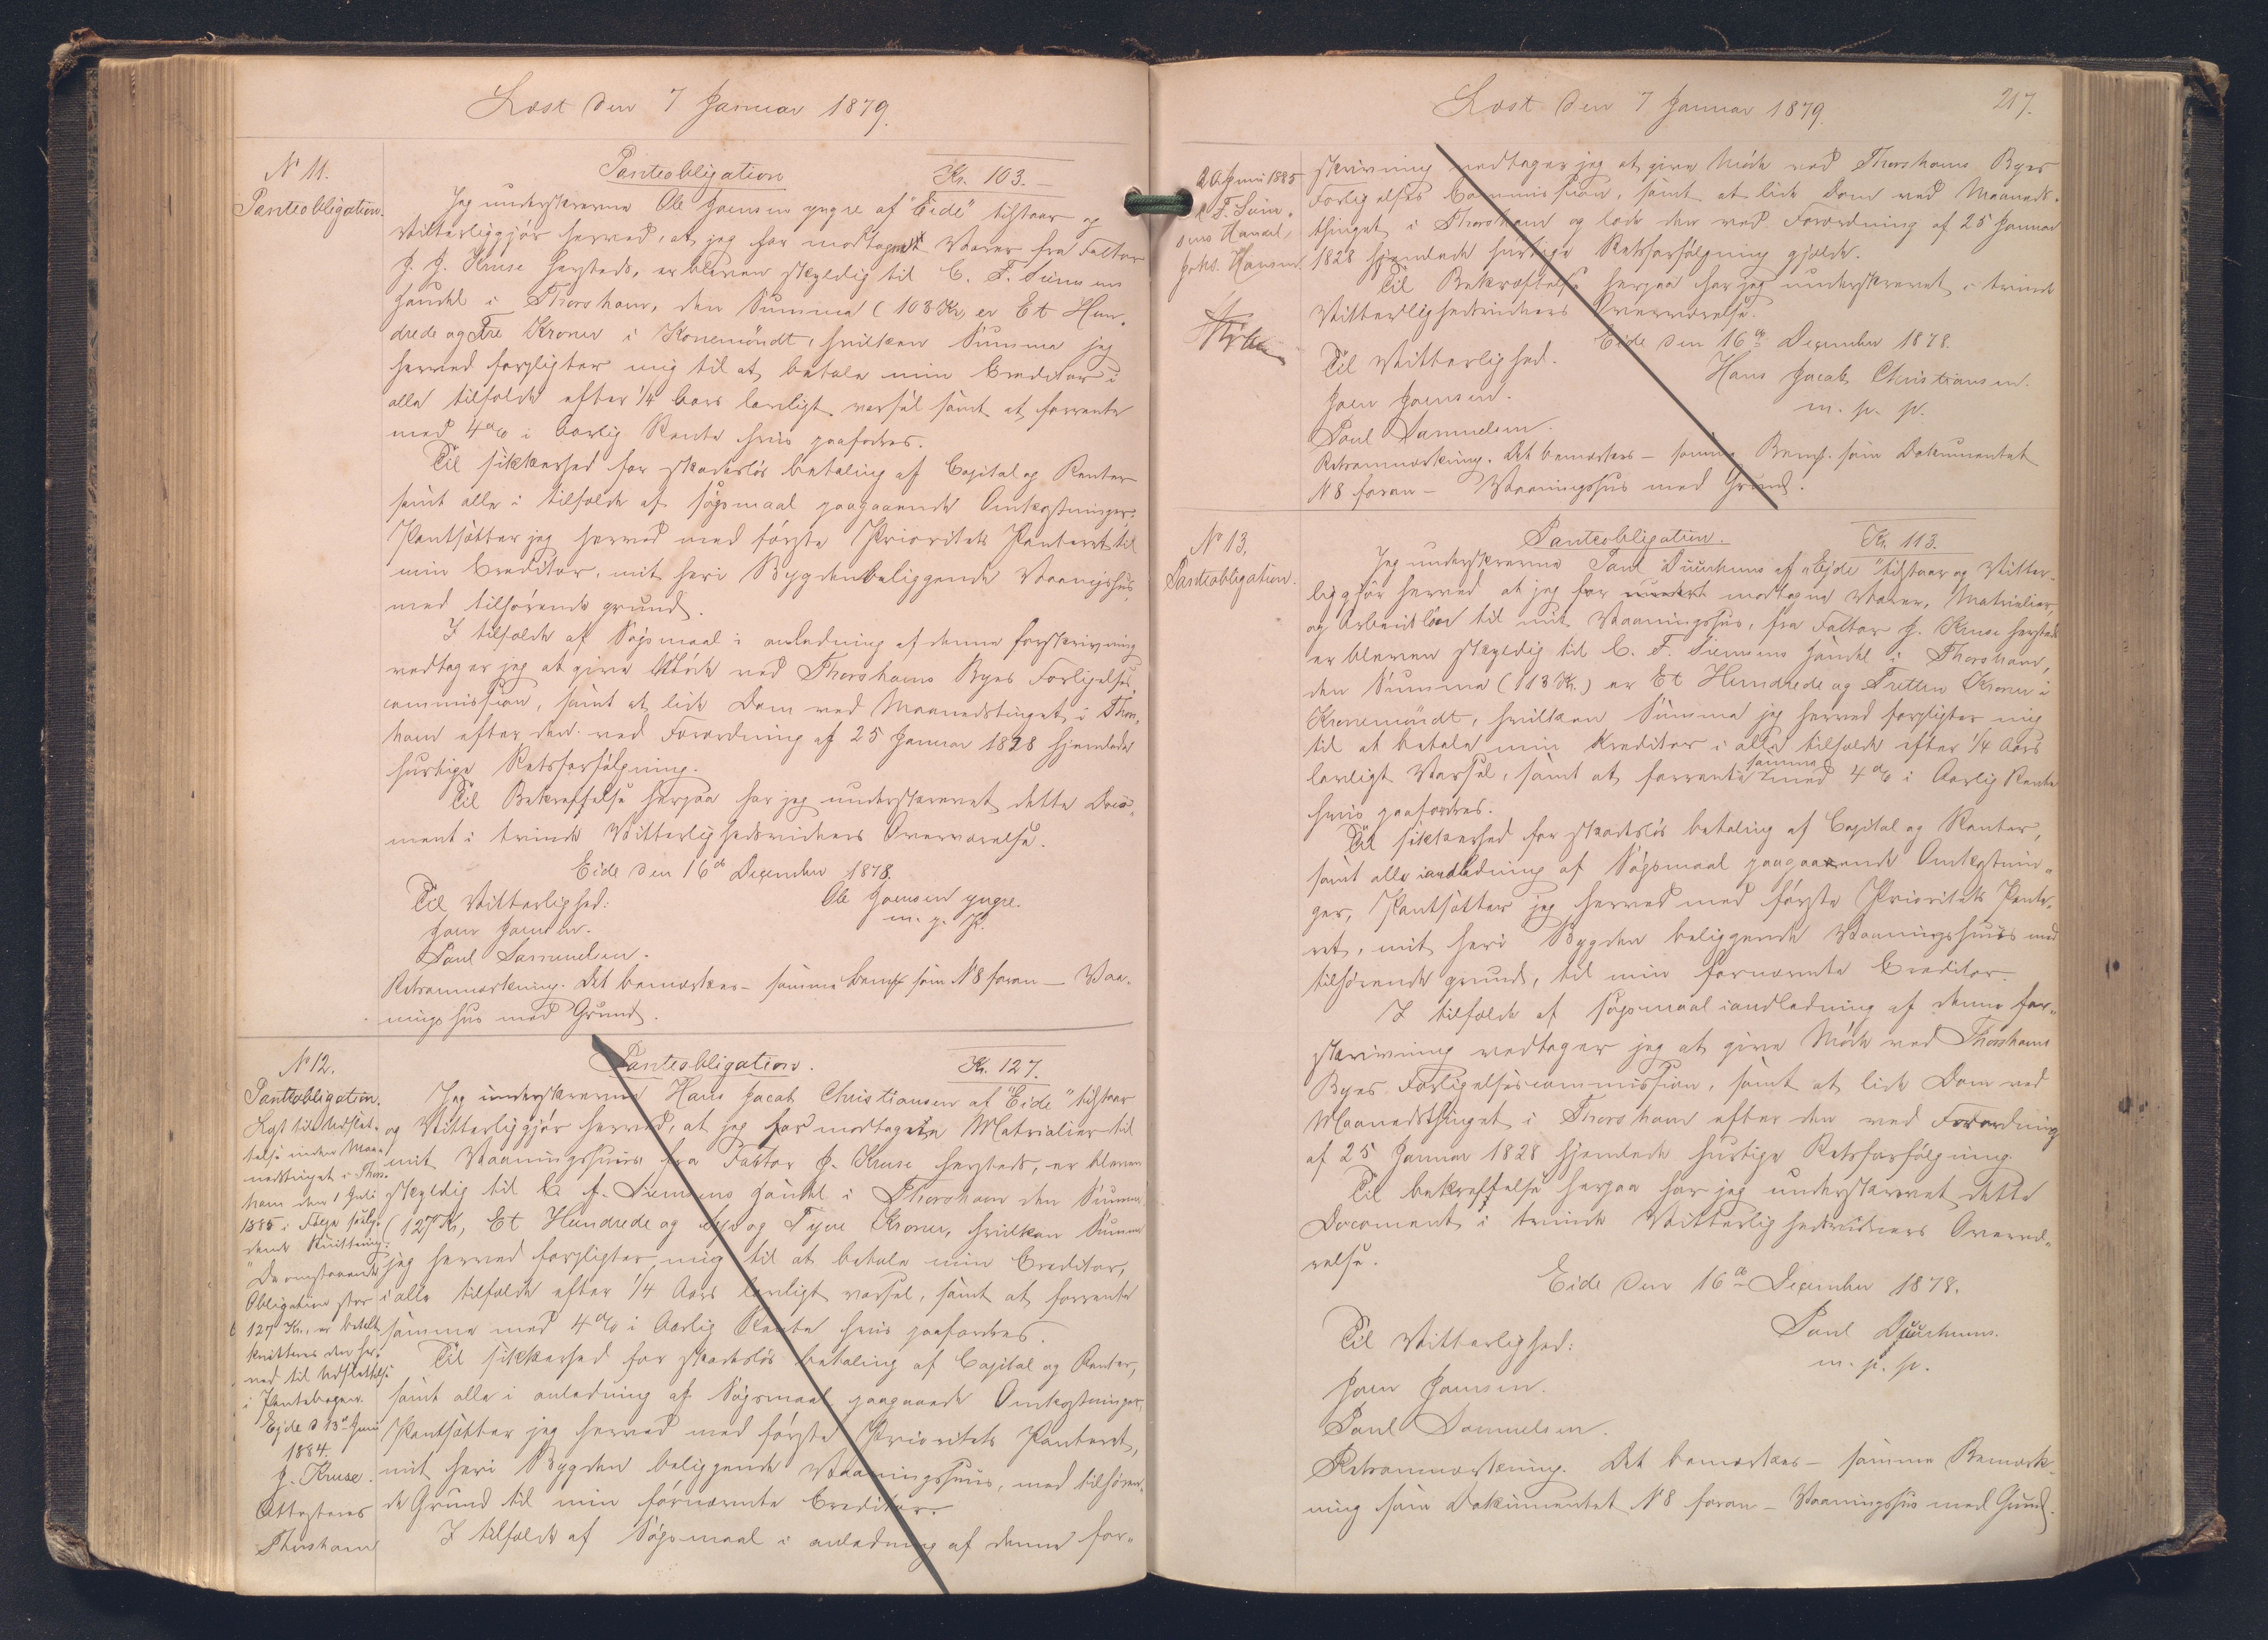 Læst den 7 Januar 1879.
N 11.
Panteobligation.
Panteobligation Kr. 103.-
Jeg underskrevne Ole Joensen yngre af "Eide" tilstaar og
Vitterliggjør herved, at jeg har modtaget Varer fra Faktor
J. J. Kruse hersteds, er bleven skyldig til C. F. Siemsens
Handel i Thorshavn, den Summa (103 Kr, er Et Hun-
drede og Tre Kroner i Kronemöndt, hvilken Summa jeg
herved forpligter mig til at betale min Creditor i
alle tilfælde efter 1/4 Aars lovligt varsel samt at forrente
med 4% i Aarlig Rente hvis paafodres.
Til sikkerhed for skadesløs betaling af Capital og Renter
samt alle i tilfælde af søgsmaal paagaaende Omkostninger,
Pantsætter jeg herved med første Prioritets Panteret til
min Creditor, mit heri Bygden beliggende Vaaningshus,
med tilhørende grund.
I tilfælde af Søgsmaal i anledning af denne forskrivning
vedtager jeg at give Møde ved Thorshavns Byes Forligelses
commission, samt at lide Dom ved Maanedstinget i Thors-
havn efter den ved Forordning af 25 Januar 1828 hjemlede
hurtige Retsforfølgning.
Til Bekræftelse herpaa har jeg underskrevet dette Docu-
ment i tvende Vitterlighedsvidners Overværelse.
Eide den 16de December 1878.
Til Vitterlighed: Ole Joensen yngre.
Joen Joensen. m. p. P.
Poul Samuelsen.
Retsanmærkning. Det bemærkes - samme Bemk som N 8 foran - Vaa-
ningshus med Grund.
N 12.
Panteobligation.
Lyst til Udslet-
telse under Maa-
nedstinget i Thors-
havn den 1 Juli
1885 i Følge følge-
dende Kvittering:
"Da omstaaende
Obligation stor
127 Kr., er betalt
kvitteres den her-
ved til Udslettelse
i Pantebogen.
Ejde d 13de Juni
1884.
J. Kruse.
Attesteres
Thorshavn
Panteobligation. Kr. 127.
Jeg underskrevne Hans Jacob Christiansen af "Eide" tilstaar
og Vitterliggjør herved, at jeg har modtagen Matrialier til
mit Vaaningshuus fra Faktor J. Kruse hersteds, er bleven
skyldig til C. F. Siemsens Handel i Thorshavn den Summa
(127 Kr, Et Hundrede og Syv og Tyve Kroner, hvilken Summa
jeg herved forpligter mig til at betale min Creditor,
i alle tilfælde efter 1/4 Aars lovligt varsel, samt at forrente
samme med 4% i Aarlig Rente hvis paafordres.
Til sikkerhed for skadesløs betaling af Capital og Renter,
samt alle i anledning af Søgsmaal paagaaende Omkostninger,
Pantsætter jeg herved med første Prioritets Panteret,
mit heri Bygden beliggende Vaaningshuus, med tilhøren-
de Grund til min fornævnte Creditor.
I tilfælde af Søgsmaal i anledning af denne for-
Læst den 7 Januar 1879. 217.
20 Juni 1885
C. F. Siem-
sens Handel,
Johs. Hansen.
skrivning vedtager jeg at give Møde ved Thorshavns Byes
Forligelses Commission, samt at lide Dom ved Maaneds-
thinget i Thorshavn og lade den ved Forordning af 25 Januar
1828 hjemlede hurtige Retsforfølgning gjælde.
Til Bekræftelse herpaa har jeg underskrevet i tvende
Vitterlighedsvidners Overværelse.
Eide den 16de December 1878.
Til Vitterlighed. Hans Jacob Christiansen.
Joen Joensen. m. p. p.
Poul Samuelsen.
Retsanmærkning. Det bemærkes - samme Bemk. som Dokumentet
N 8 foran - Vaaningshus med Grund.
N 13.
Panteobligation.
Panteobligation. Kr. 113.
Jeg underskrevne Poul Duurhuus af "Ejde" tilstaar og Vitter-
liggjør herved at jeg har modtagne Varer, Matrialier,
og Arbeidsløn til mit Vaaningshus, fra Faktor J. Kruse hersteds
er bleven skyldig til C. F. Siemsens Handel i Thorshavn,
den Summa (113 Kr.) er Et Hundrede og Tretten Kroner i
Kronemöndt, hvilken Summa jeg herved forpligter mig
til at betale min Kreditor i alle tilfælde efter 1/4 Aars
lovligt Varsel, samt at forrente samme med 4% i Aarlig Rente
hvis paafordres.
Til sikkerhed for skadesløs betaling af Capital og Renter,
samt alle iandledning af Søgsmaal paagaaende Omkostnin-
ger, Pantsætter jeg herved med første Prioritets Pante-
ret, mit heri Bygden beliggende Vaaningshuus med
tilhørende grund, til min fornævnte Creditor.
I tilfælde af søgsmaal iandledning af denne for-
skrivning vedtager jeg at give Møde ved Thorshavns
Byes Forligelsescommission, samt at lide Dom ved
Maanedsthinget i Thorshavn efter den ved Forordning
af 25 Januar 1828 hjemlede hurtige Retsforfølgning.
Til bekræftelse herpaa har jeg underskrevet dette
Document i tvende Vitterlighedsvidners Overvæ-
relse.
Eide den 16de December 1878.
Til Vitterlighed: Poul Duurhuus.
Joen Joensen. m. p. p.
Poul Samuelsen.
Retsanmærkning. Det bemærkes - samme Bemærk-
ning som Dokumentet N 8 foran - Vaaningshus med Grund.